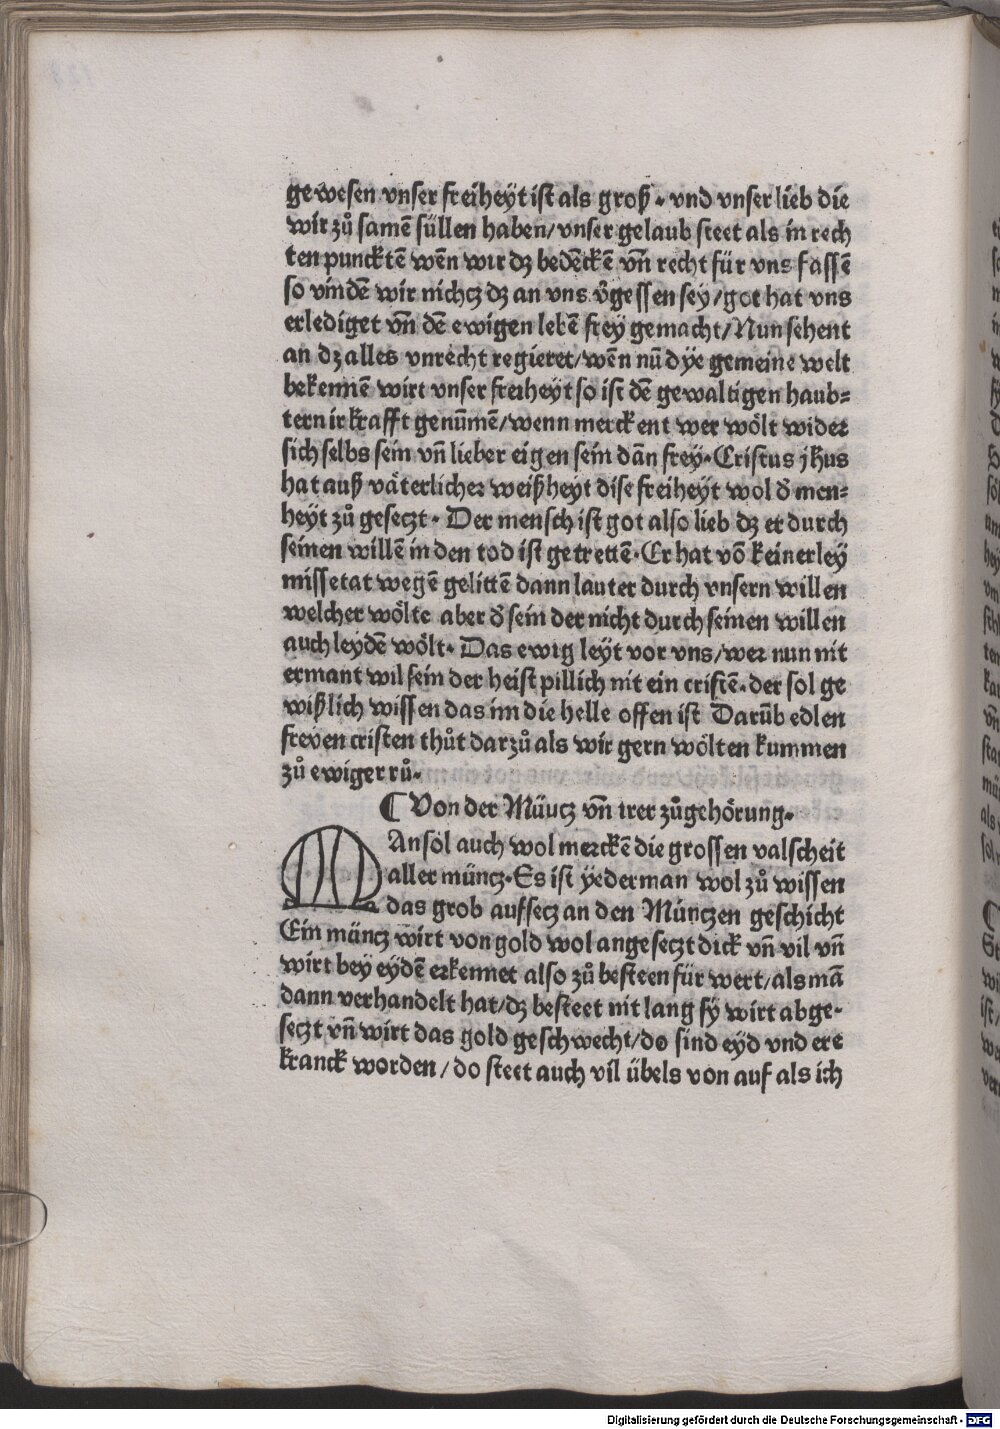 gewesen vnser freiheyt ist als groß · vnd vnser lieb die
wir zů samē süllen haben/ vnser gelaub steet als in rech
ten puncktē wēn wir dʒ bedēckē vn̄ recht für vns fassē
so vindē wir nichcʒ dʒ an vns v̄gessen sey/ got hat vns
erlediget vn̄ dē ewigen lebē frey gemacht/ Nun sehent
an dʒ alles vnrecht regieret/ wēn nū dye gemeine welt
bekennē wirt vnser freiheyt so ist dē gewaltigen haub⸗
tern ir krafft genūmē/ wenn merckent wer wölt wider
sich selbs sein vn̄ lieber eigen sein dān frey · Cristus jhus
hat auß väterlicher weißheyt dise freiheyt wol d̄ men⸗
heyt zů gesecʒt · Der mensch ist got also lieb dʒ er durch
seinen willē in den tod ist getrettē · Er hat vō keinerley
missetat wegē gelittē dann lauter durch vnsern willen
welcher wölte aber d̄ sein der nicht durch seinen willen
auch leydē wölt · Das ewig leyt vor vns/ wer nun nit
ermant wil sein der heist pillich nit ein cristē · der sol ge
wißlich wissen das im die helle offen ist Darūb edlen
freyen cristen thůt darzů als wir gern wölten kummen
zů ewiger rů ·
¶ Von der Müncʒ vn̄ irer zůgehörung ·
MAn söl auch wol merckē die grossen valscheit
aller müncʒ · Es ist yederman wol zů wissen
das grob aufsecʒ an den Müncʒen geschicht
Ein müncʒ wirt von gold wol angesecʒt dick vn̄ vil vn̄
wirt bey eydē erkennet also zů besteen für wert/ als mā
dann verhandelt hat/ dʒ besteet nit lang sy wirt abge⸗
secʒt vn̄ wirt das gold geschwecht/ do sind eyd vnd ere
kranck worden/ do steet auch vil übels von auf als ich
Digitalisierung gefördert durch die Deutsche Forschungsgemeinschaft - DFG